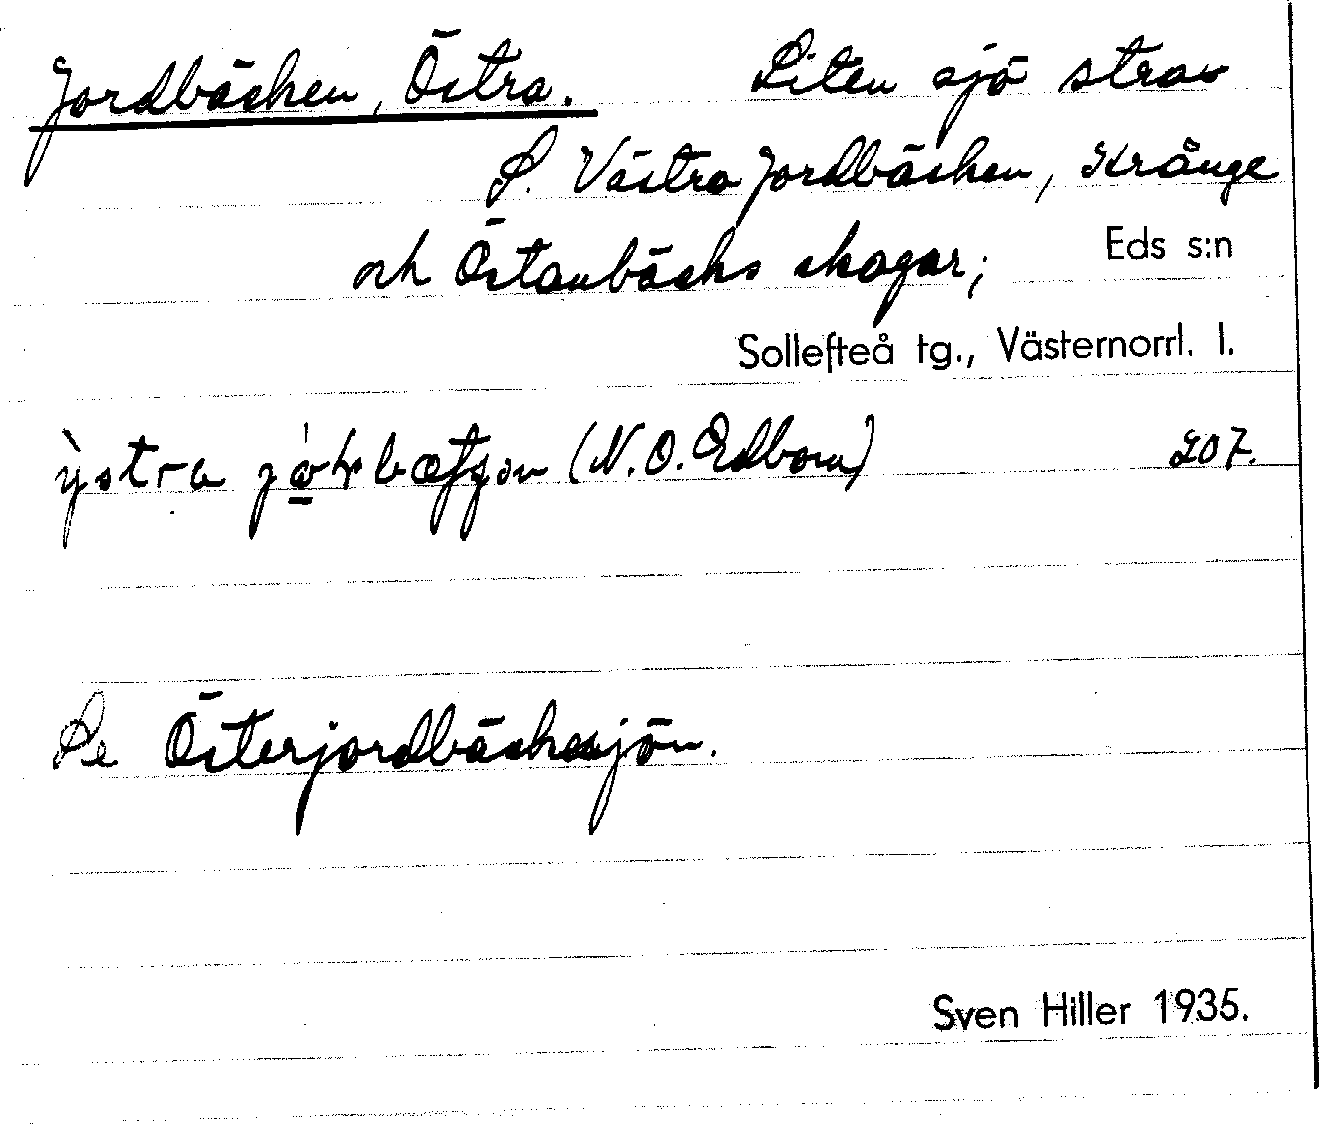 Jordbäcken, Östra. Liten sjö strax
S. Västra Jordbäcken, Krånge
och Östanbäcks skogar; Eds s:n
Sollefteå tg., Västernorrl. l.
(N. O. Edbom) 207.
Se Österjordbäckssjön.
Sven Hiller 1935.